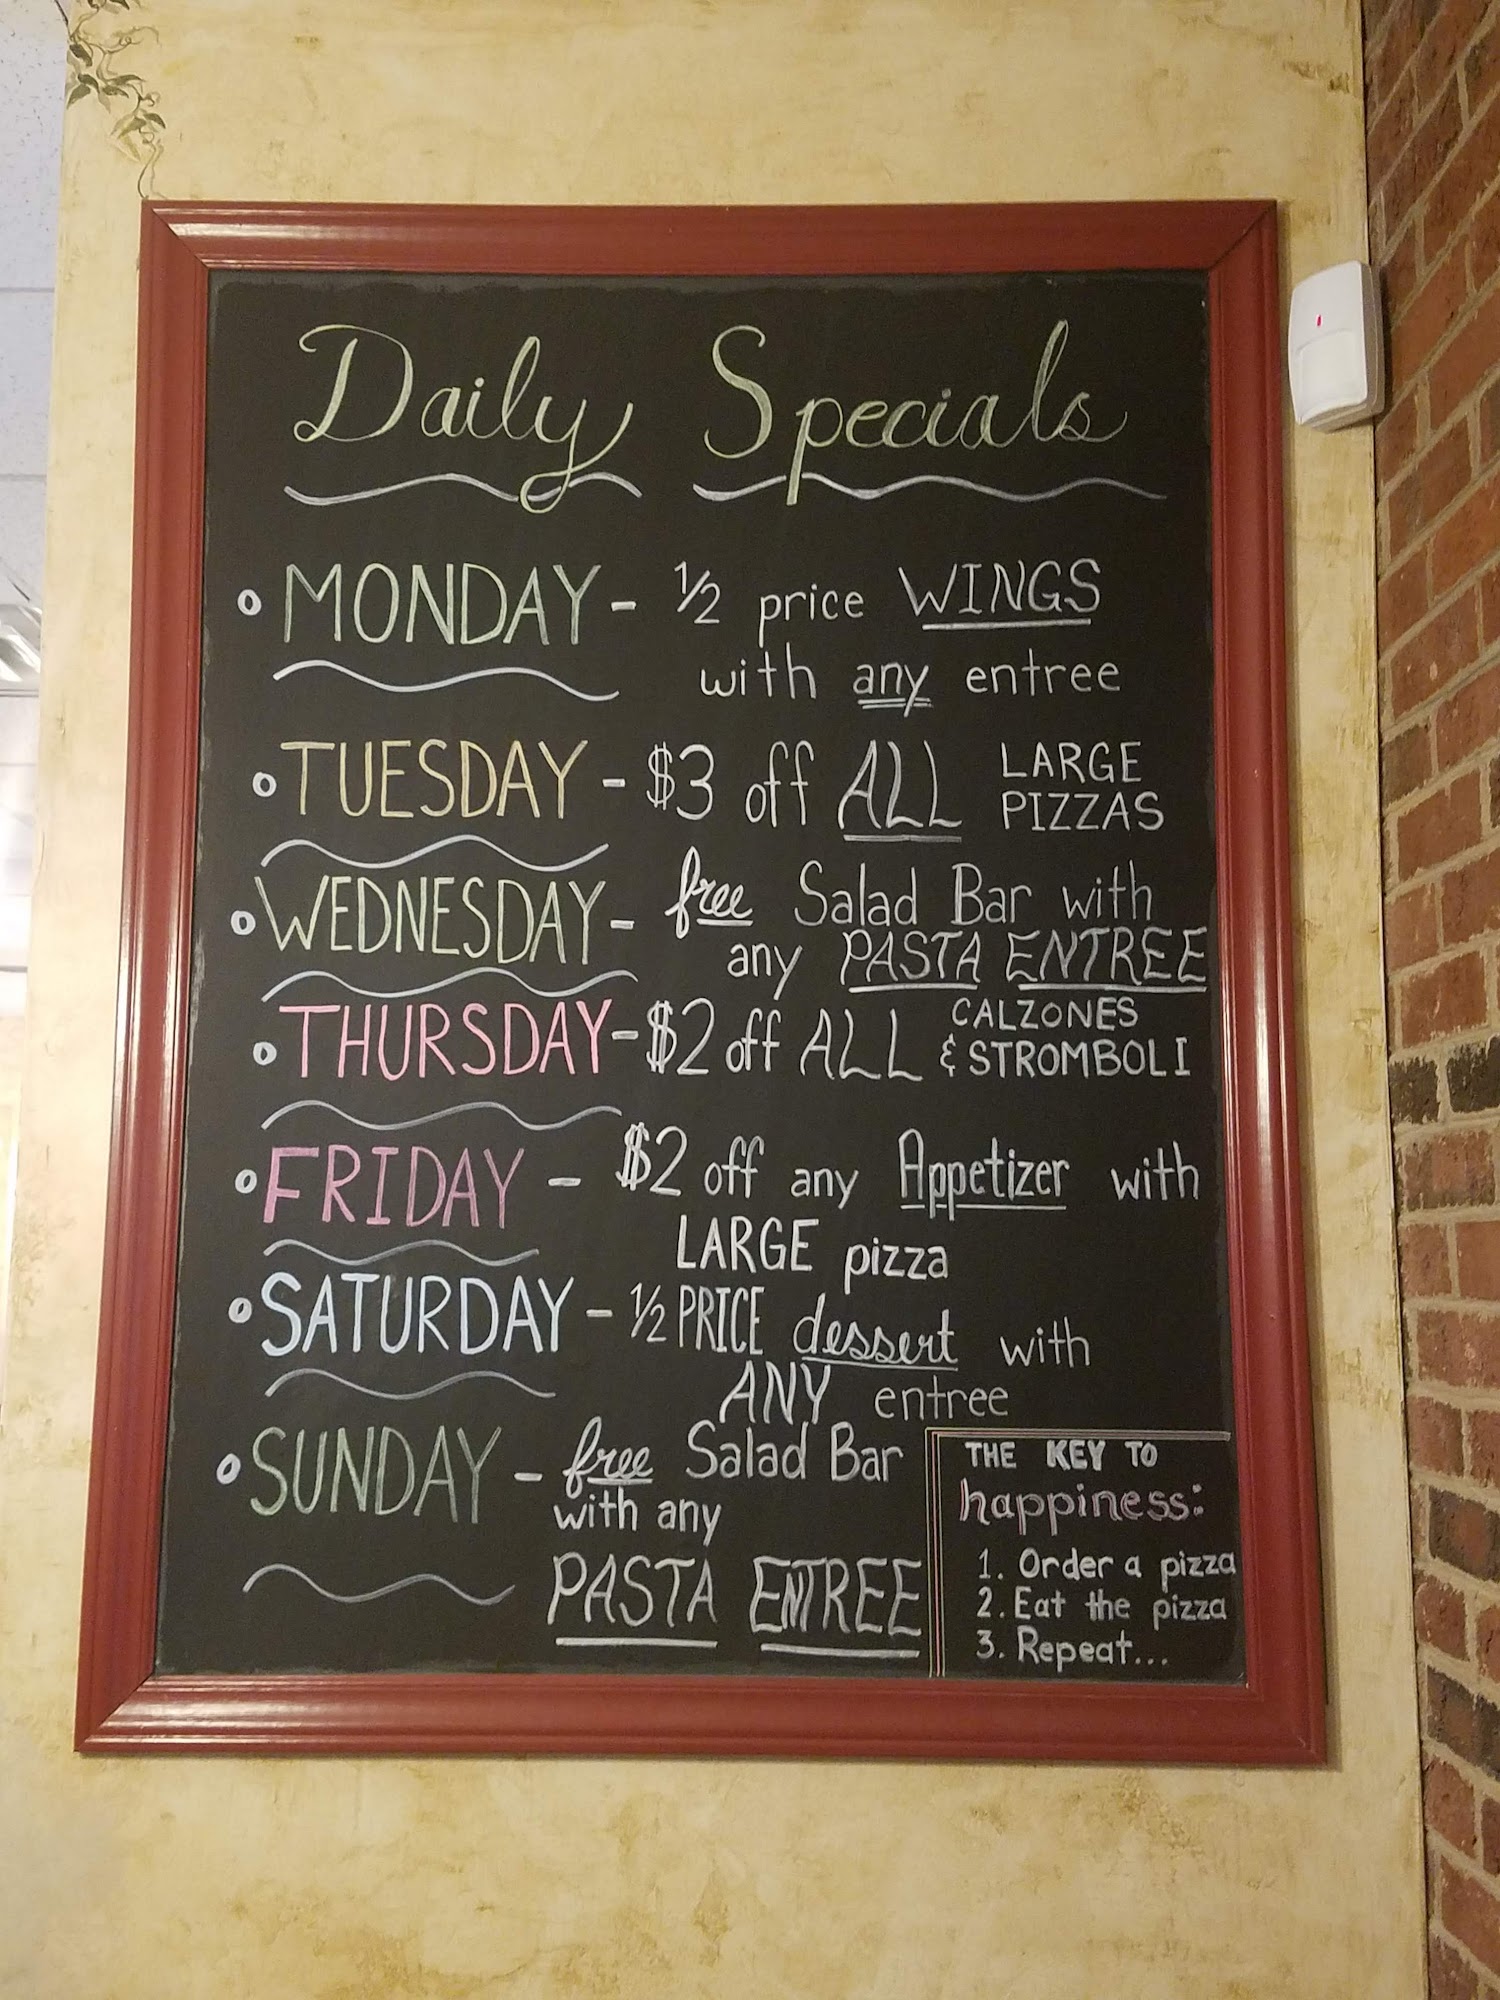 Daily Specials
MONDAY - ½ price WINGS
with any entree
TUESDAY - $3 off ALL LARGE
PIZZAS
WEDNESDAY - free Salad Bar with
any PASTA ENTREE
THURSDAY - $2 off ALL CALZONES
& STROMBOLI
FRIDAY - $2 off any Appetizer with
LARGE pizza
SATURDAY - ½ PRICE dessert with
ANY entree
SUNDAY - free Salad Bar
with any
PASTA ENTREE
THE KEY TO
happiness:
1. Order a pizza
2. Eat the pizza
3. Repeat...